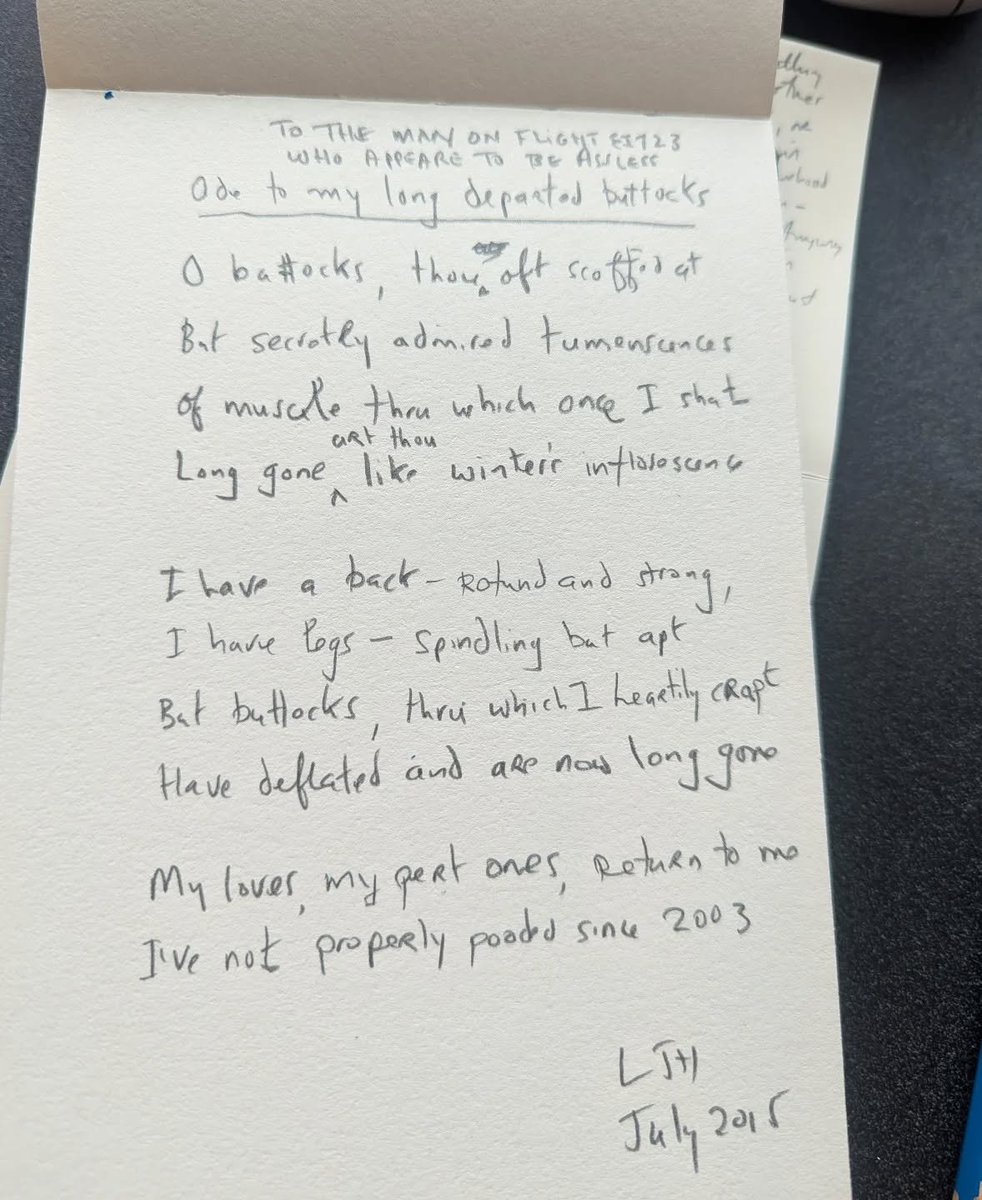 TO THE MAN ON FLIGHT EI723
WHO APPEARE TO BE ASSLESS
Ode to my long departed buttocks
O buttocks, thou oft scoffed at
But secretly admired tumenscences
of muscle thru which once I shat
Long gone art thou like winter's infloroscence
I have a back – Rotund and strong,
I have legs – spindling but apt
But buttocks, thru which I heartily crapt
Have deflated and are now long gone
My loves, my pert ones, Return to me
I've not properly pooded since 2003
LJH
July 2015